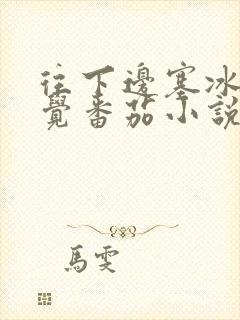 往下邊塞冰
覺番茄小說
馬雯